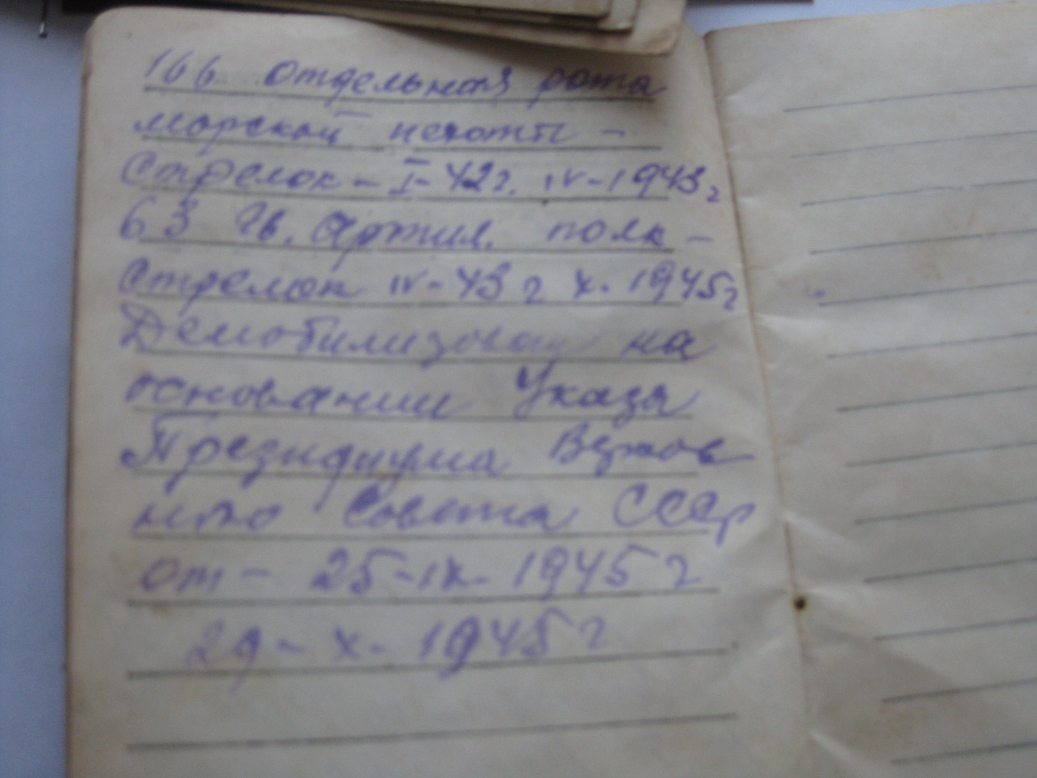 166 отдельная рота
морской пехоты -
Стрелок - I-42г. IV-1943г
63 Гв. Артил. полк -
Стрелок IV-43г X-1945г
Демобилизован на
основании Указа
Президиума Верхов
ного Совета СССР
от - 25-IX-1945г
29-X-1945г